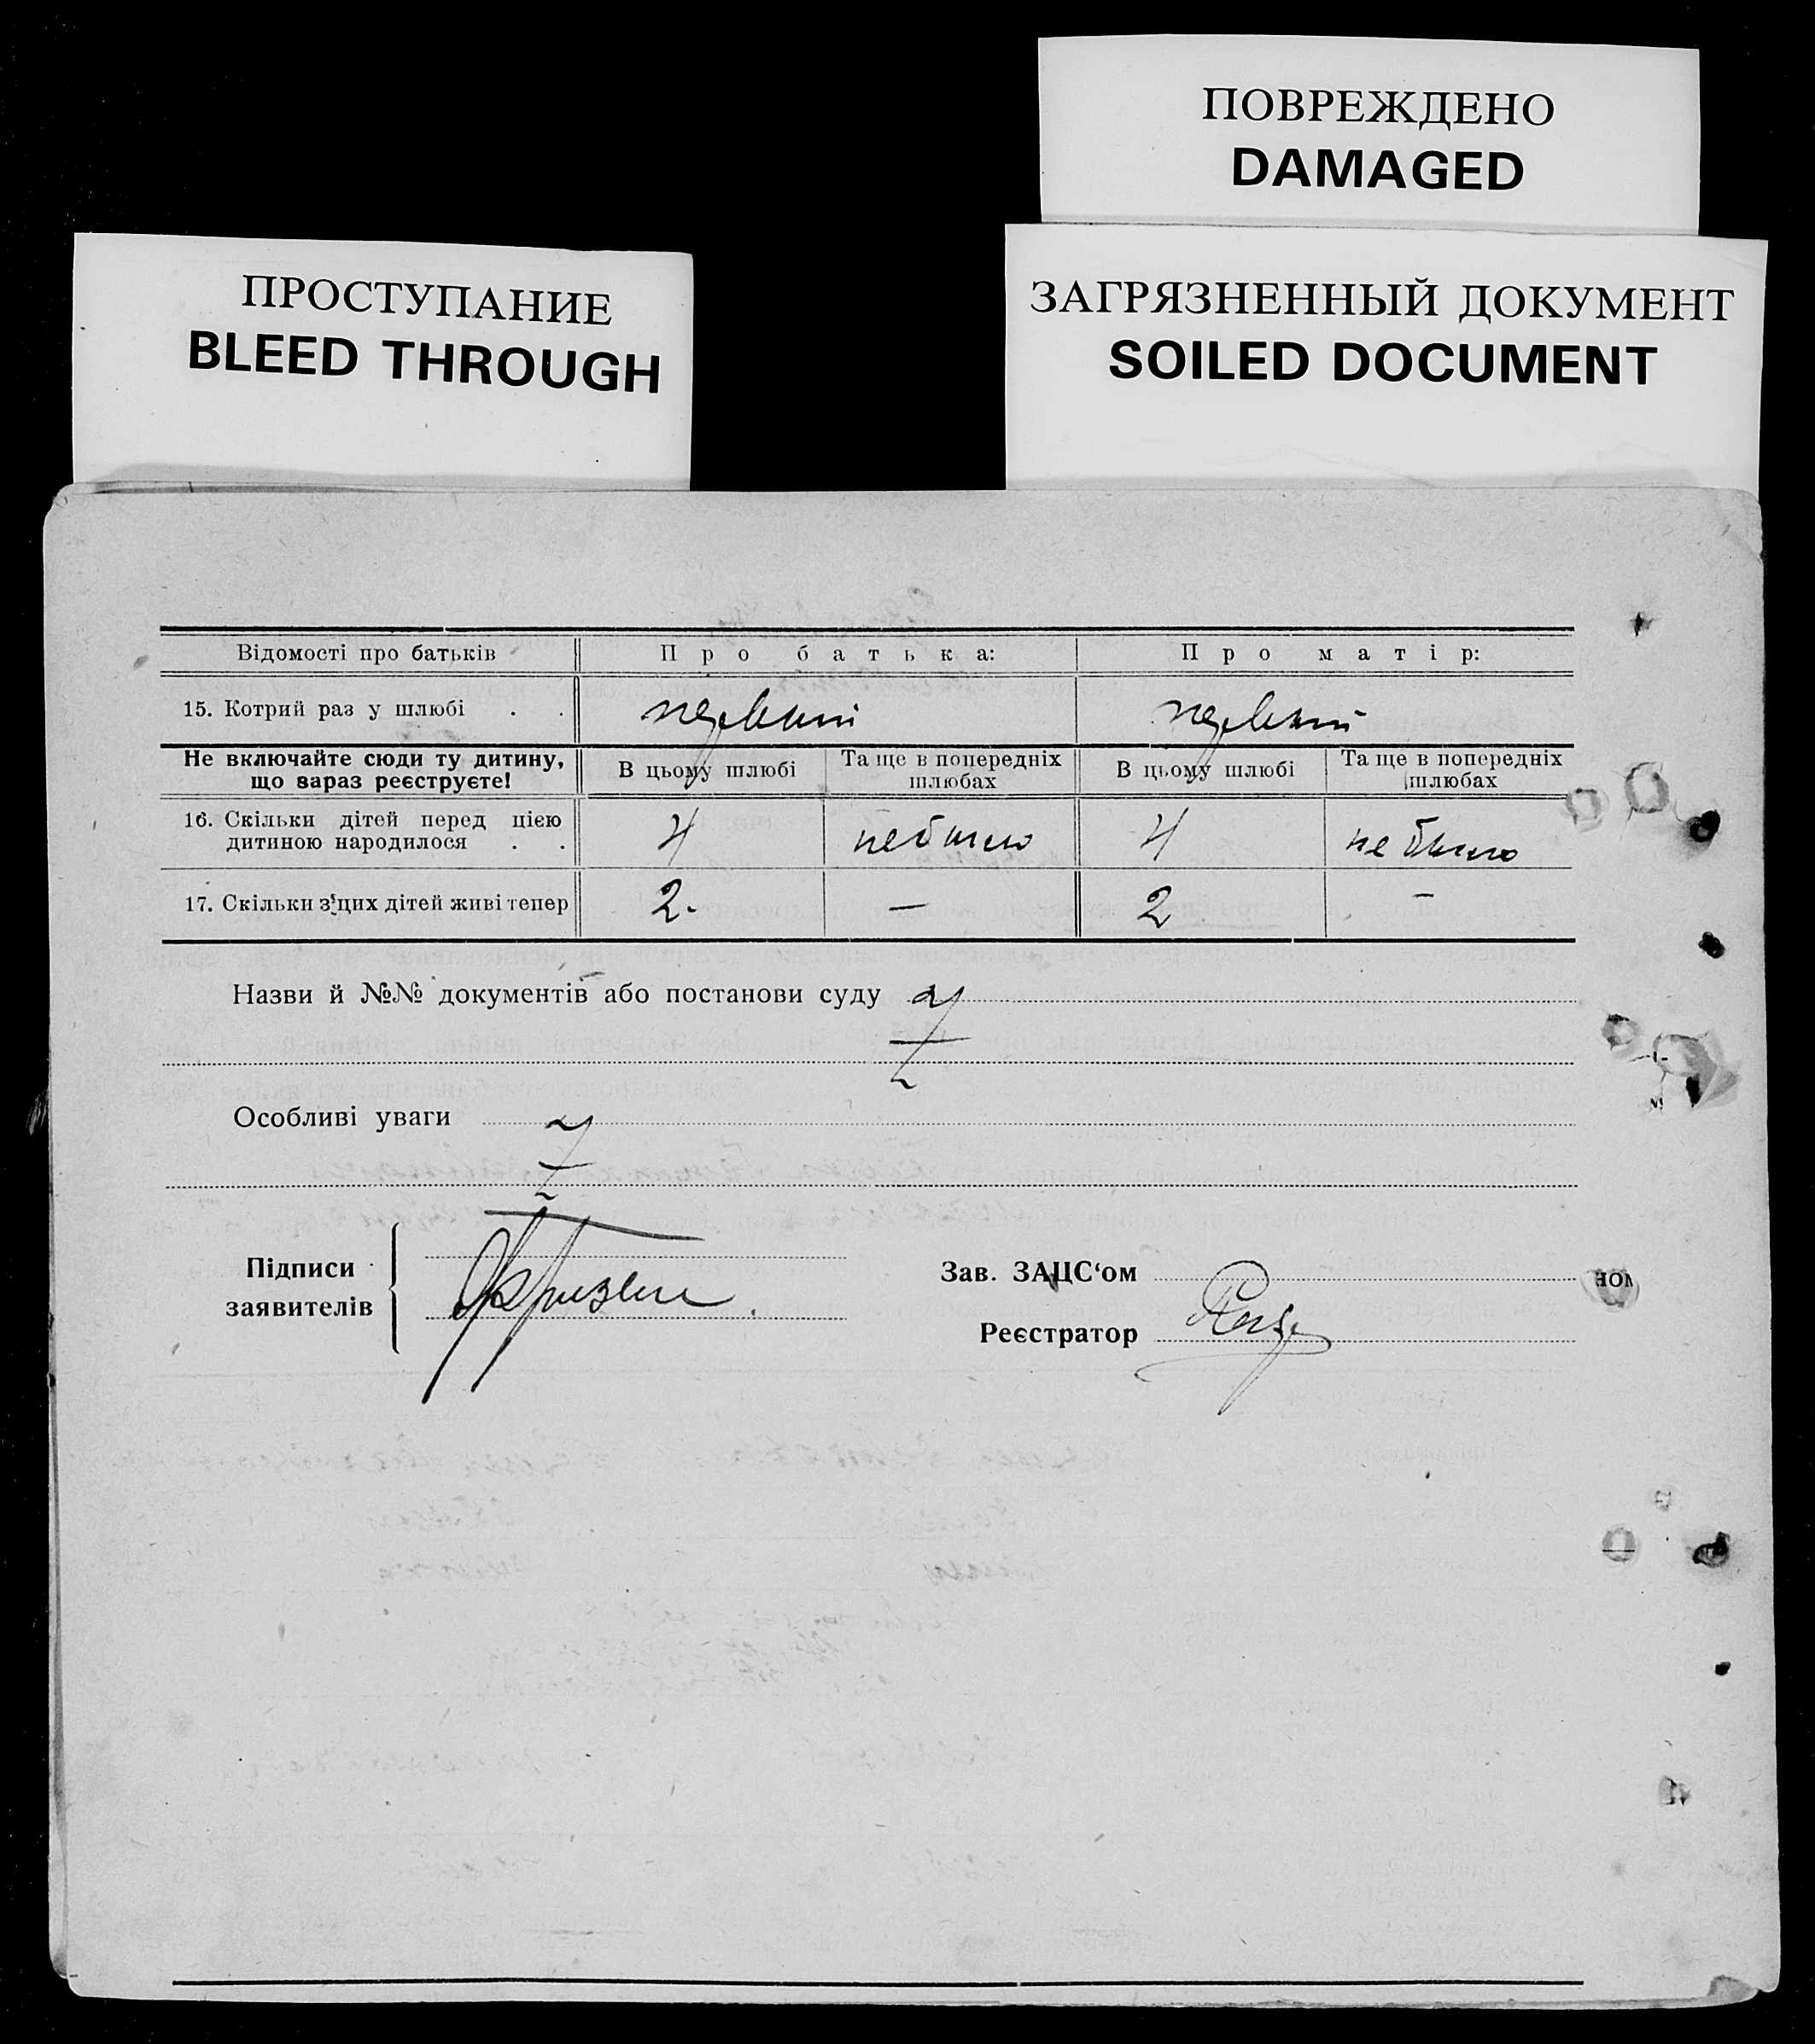 ПОВРЕЖДЕНО
DAMAGED
ПРОСТУПАНИЕ
BLEED THROUGH
ЗАГРЯЗНЕННЫЙ ДОКУМЕНТ
SOILED DOCUMENT
Відомості про батьків Про батька: Про матір:
15. Котрий раз у шлюбі . . первий первий
Не включайте сюди ту дитину, що вараз реєструєте! В цьому шлюбі Та ще в попередніх шлюбах В цьому шлюбі Та ще в попередніх шлюбах
16. Скільки дітей перед цією дитиною народилося . . 4 не було 4 не було
17. Скільки з цих дітей живі тепер 2. — 2 —
Назви й №№ документів або постанови суду
Особливі уваги
Підписи заявителів
Зав. ЗАЦС‘ом
Реєстратор